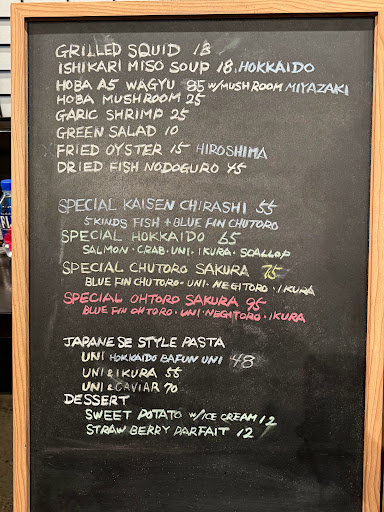 GRILLED SQUID 18
ISHIKARI MISO SOUP 18 HOKKAIDO
HOBA A5 WAGYU 85 W/MUSHROOM MIYAZAKI
HOBA MUSHROOM 25
GARIC SHRIMP 25
GREEN SALAD 10
FRIED OYSTER 15 HIROSHIMA
DRIED FISH NODOGURO 45
SPECIAL KAISEN CHIRASHI 55
5 KINDS FISH + BLUE FIN CHUTORO
SPECIAL HOKKAIDO 65
SALMON · CRAB · UNI · IKURA · SCALLOP
SPECIAL CHUTORO SAKURA 75
BLUE FIN CHUTORO · UNI · NEGITORO · IKURA
SPECIAL OHTORO SAKURA 95
BLUE FIN OHTORO · UNI · NEGITORO · IKURA
JAPANESE STYLE PASTA
UNI HOKKAIDO BAFUN UNI 48
UNI & IKURA 55
UNI & CAVIAR 70
DESSERT
SWEET POTATO W/ICE CREAM 12
STRAWBERRY PARFAIT 12